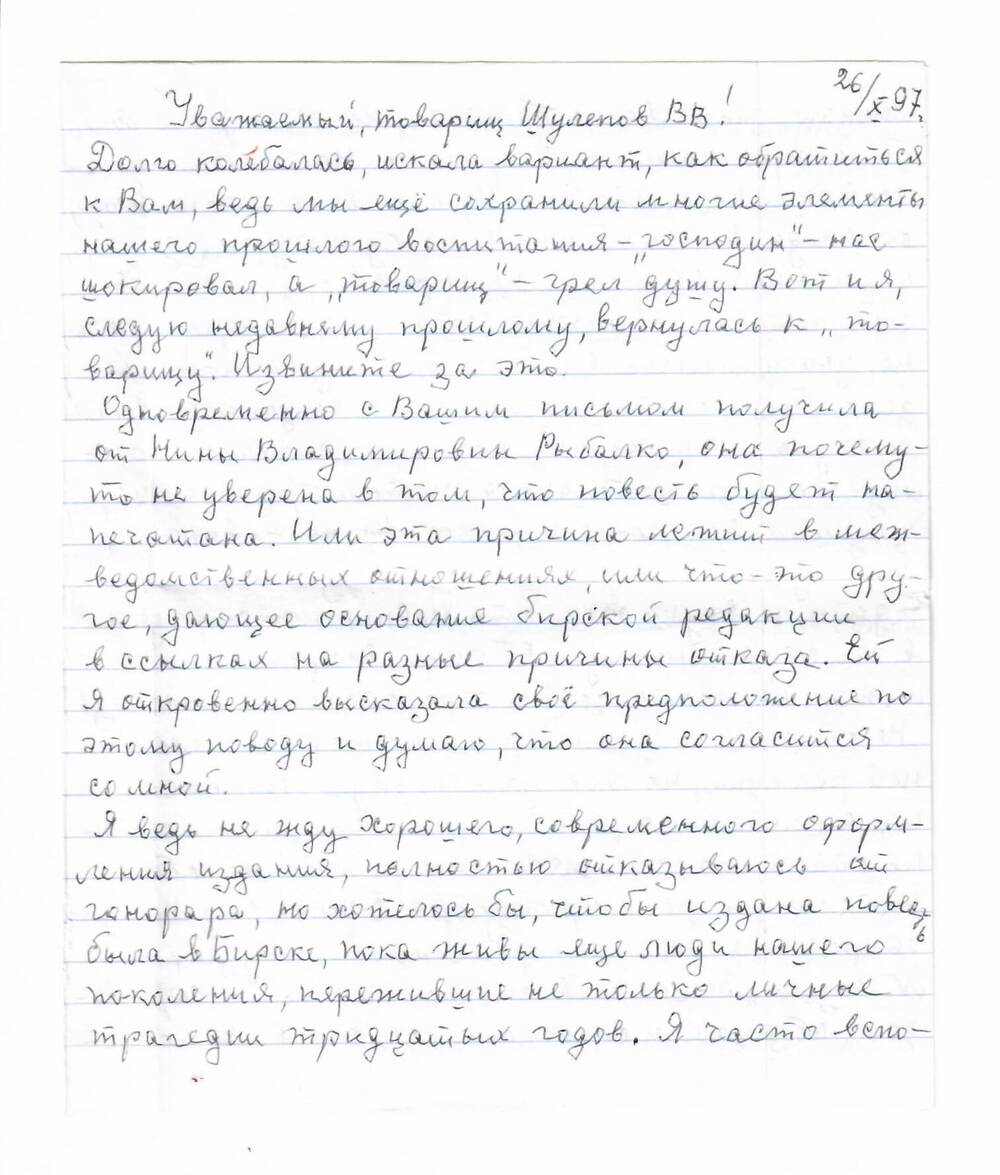 26/X 97г.
Уважаемый, товарищ Шулепов ВВ!
Долго колебалась, искала вариант, как обратиться
к Вам, ведь мы ещё сохранили многие элементы
нашего прошлого воспитания – "господин" – нас
шокировал, а „товарищ" – грел душу. Вот и я,
следую недавнему прошлому, вернулась к „то-
варищу". Извините за это.
Одновременно с Вашим письмом получила
от Нины Владимировны Рыбалко, она почему-
то не уверена в том, что повесть будет на-
печатана. Или эта причина лежит в меж-
ведомственных отношениях, или что-это дру-
гое, дающее основание бирской редакции
в ссылках на разные причины отказа. Ей
я откровенно высказала своё предположение по
этому поводу и думаю, что она согласится
со мной.
Я ведь не жду хорошего, современного оформ-
ления издания, полностью отказываюсь от
гонорара, но хотелось бы, чтобы издана повесть
была в Бирске, пока живы еще люди нашего
поколения, пережившие не только личные
трагедии тридцатых годов. Я часто вспо-